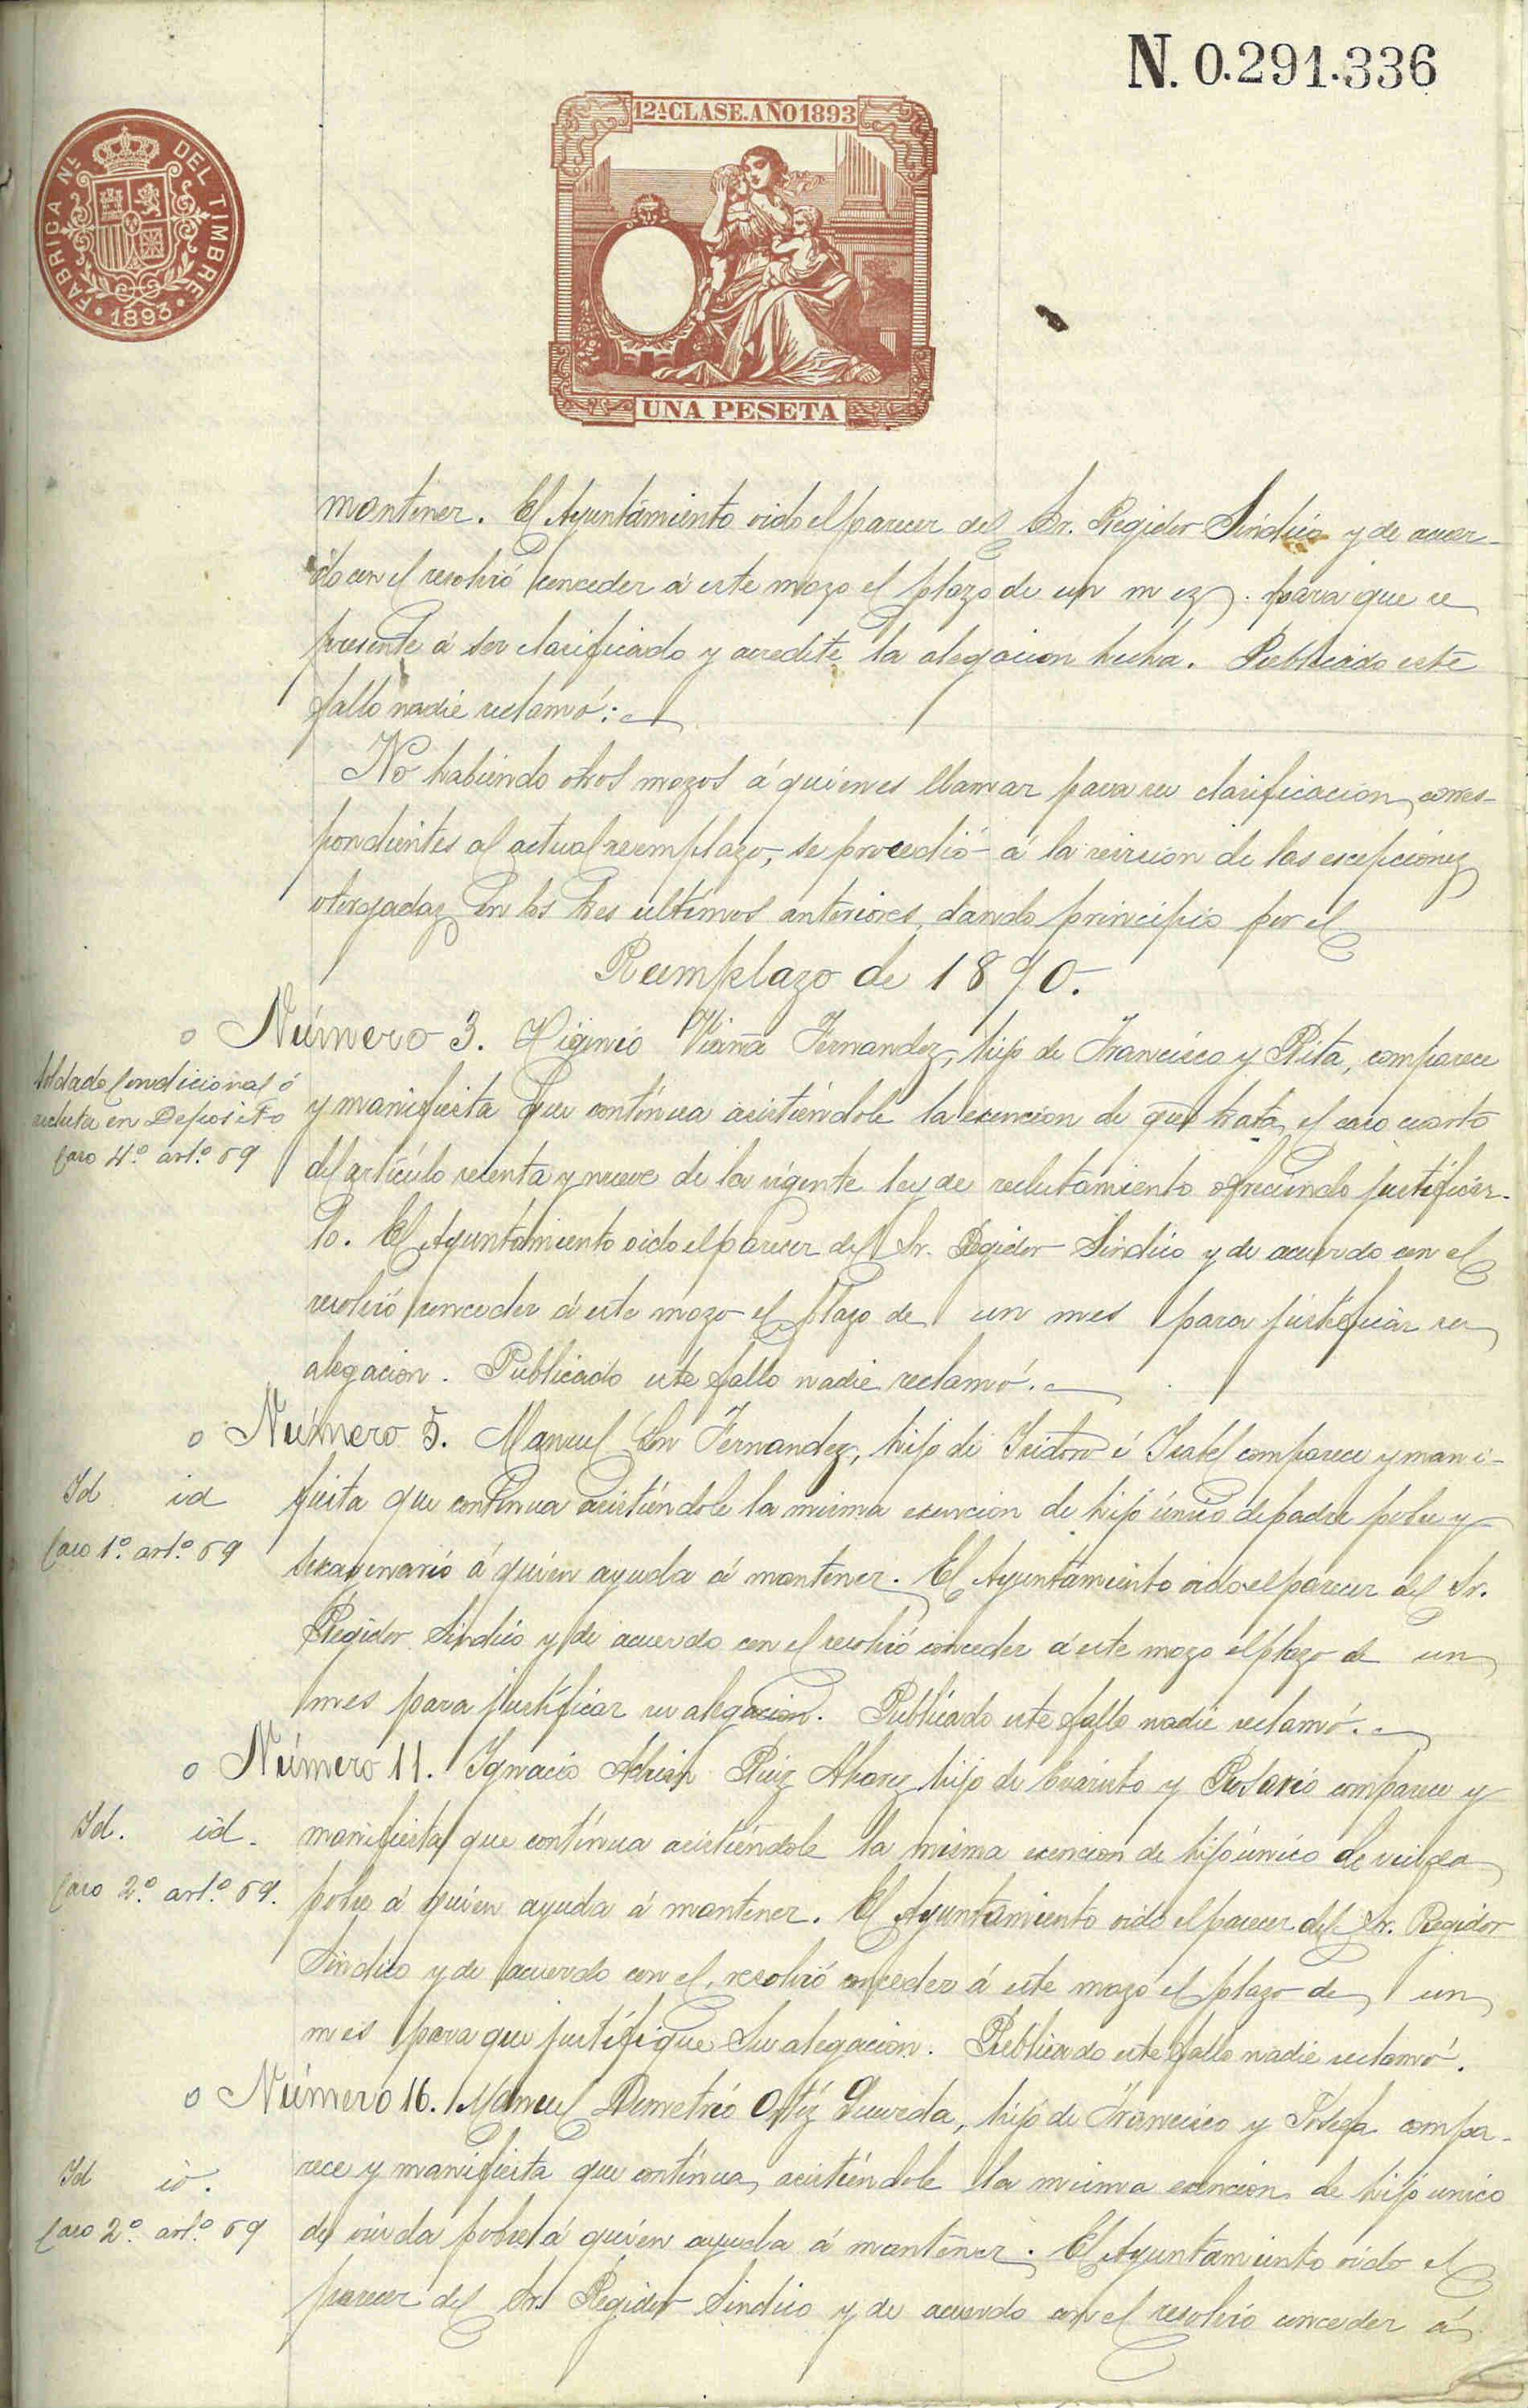 N. 0.291.336
12ª CLASE. AÑO 1893
FABRICA NL. DEL TIMBRE
1893
UNA PESETA
mantener. El Ayuntamiento oido el parecer del Sr. Regidor Sindico y de acuer-
do con el resolvió conceder á este mozo el plazo de un mez. para que se
presente á ser clasificado y acredite la alegacion hecha. Publicado este
fallo nadie reclamó:
No habiendo otros mozos á quienes llamar para su clasificacion, corres-
pondientes al actual reemplazo, se procedió á la revision de las escepcionez
otorgadaz en los tres ultimos anteriores, dando principio por el
Reemplazo de 1890.
o Número 3. Higinio Viaña Fernandez, hijo de Francisco y Rita, comparece
Soldado Condicional ó
y manifiesta que continua asistiendole la exencion de que trata el caso cuarto
recluta en Deposito
Caso 4.º art.º 69
del articulo sesenta y nueve de la vigente ley de reclutamiento ofreciendo justificar-
lo. El Ayuntamiento oido el parecer del Sr. Regidor Sindico y de acuerdo con el
resolvió conceder á este mozo el plazo de un mes para justificar su
alegacion. Publicado este fallo nadie reclamó.
o Número 5. Manuel Fernandez, hijo de Isidoro é Isabel comparece y mani-
Id id
fiesta que continua asistiendole la misma exencion de hijo único de padre pobre y
Caso 1.º art.º 69
sexagenario á quien ayuda á mantener. El Ayuntamiento oido el parecer del Sr.
Regidor Sindico y de acuerdo con el resolvió conceder á este mozo el plazo de un
mes para justificar su alegacion. Publicado este fallo nadie reclamó.
o Número 11. Ignacio Adrian Ruiz Alvarez hijo de Evaristo y Rosario comparece y
Id. id.
manifiesta que continua asistiendole la misma exencion de hijo único de viuda
Caso 2.º art.º 69.
pobre á quien ayuda á mantener. El Ayuntamiento oido el parecer del Sr. Regidor
Sindico y de acuerdo con el, resolvió conceder á este mozo el plazo de un
mes para que justifique su alegacion. Publicado este fallo nadie reclamó.
o Número 16. Manuel Demetrio Ortiz Queveda, hijo de Francisco y Josefa compa-
rece y manifiesta que continua asistiendole la misma exencion de hijo unico
Id id.
Caso 2.º art.º 69
de viuda pobre á quien ayuda á mantener. El Ayuntamiento oido el
parecer del Sr. Regidor Sindico y de acuerdo con el resolvió conceder á